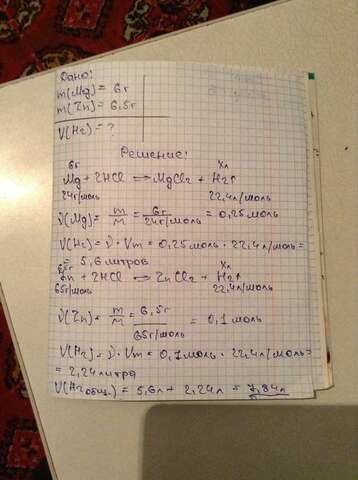 Дано:
m(Mg) = 6г
m(Zn) = 6,5г
V(H₂) = ?
Решение:
6г Xл
Mg + 2HCl → MgCl₂ + H₂↑
24г/моль 22,4л/моль
ν(Mg) = m/M = 6г/24г/моль = 0,25моль
V(H₂) = ν · Vm = 0,25моль · 22,4л/моль =
= 5,6 литров
6,5г Xл
Zn + 2HCl → ZnCl₂ + H₂↑
65г/моль 22,4л/моль
ν(Zn) = m/M = 6,5г/65г/моль = 0,1моль
V(H₂) = ν · Vm = 0,1моль · 22,4л/моль =
= 2,24 литра
V(H₂ общ.) = 5,6л + 2,24л = 7,84л